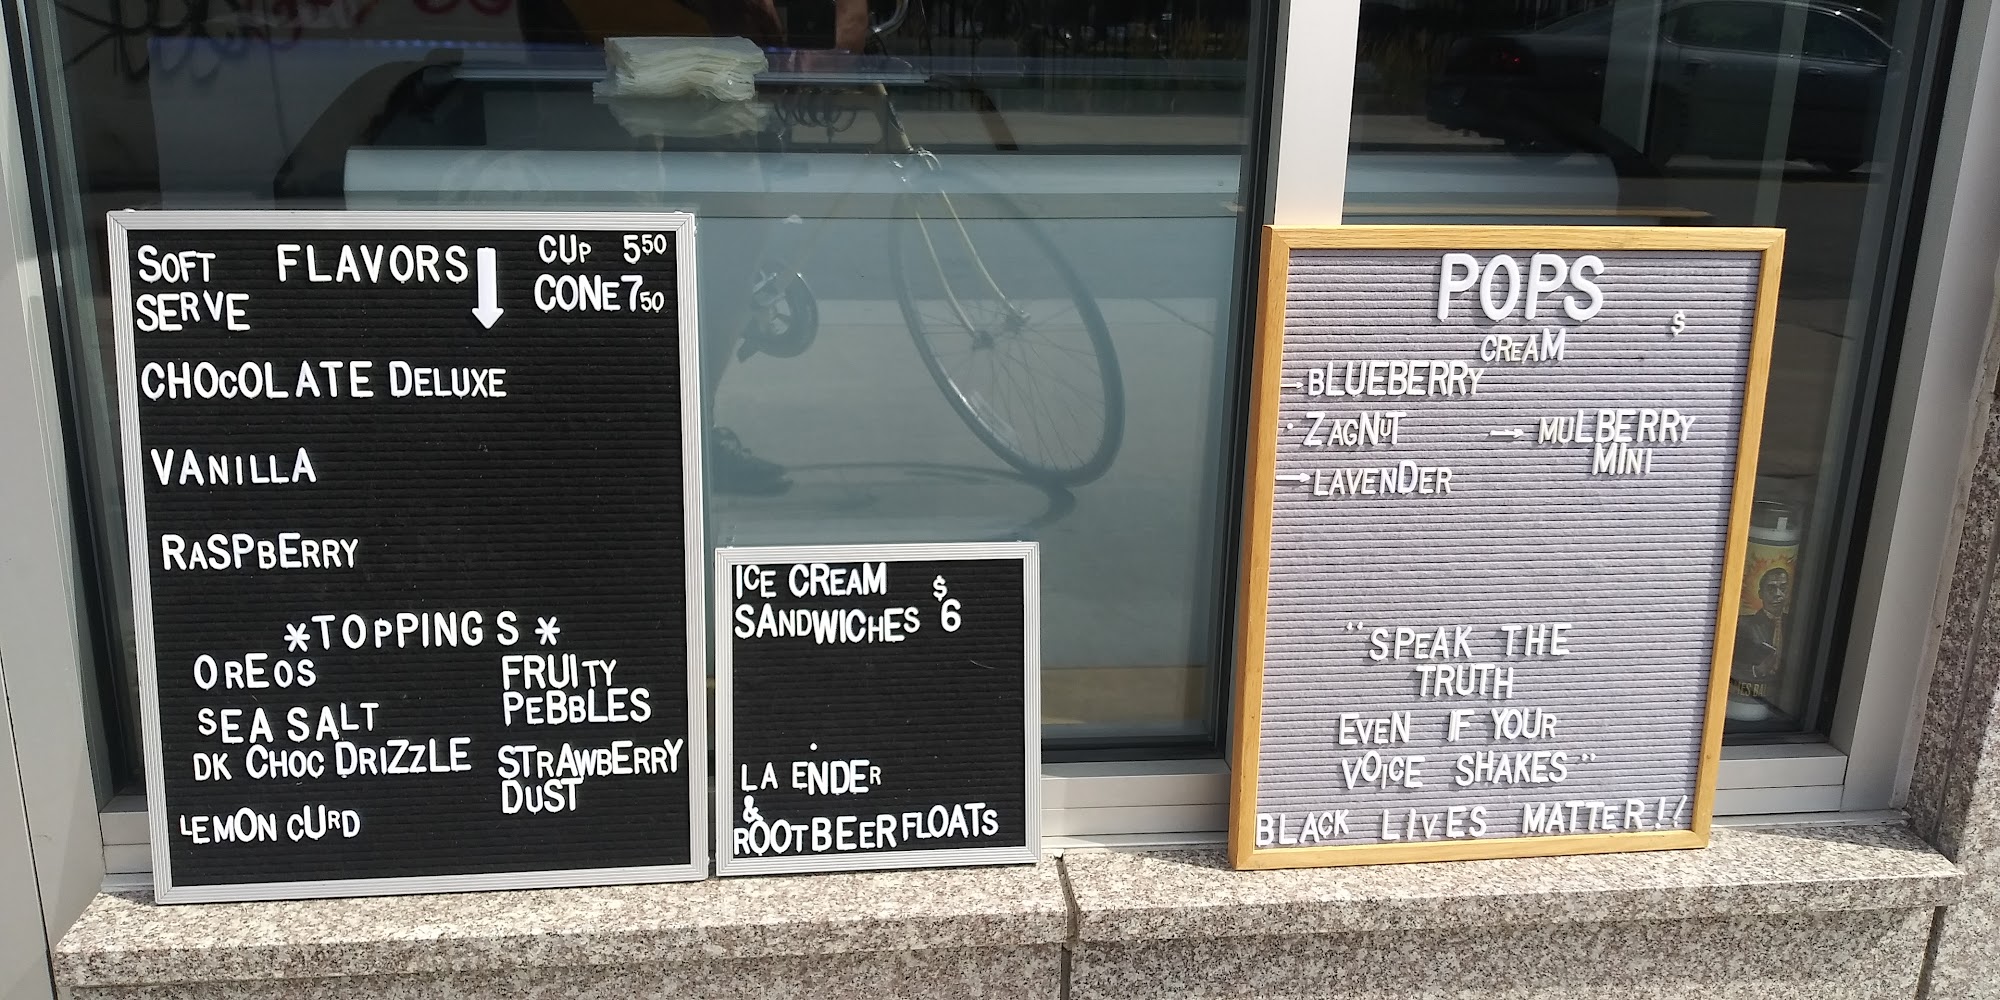 SOFT SERVE
FLAVORS
CUP 5 50
CONE 7 50
CHOCOLATE DELUXE
VANILLA
RASPBERRY
*TOPPINGS*
OREOS
SEA SALT
DK CHOC DRIZZLE
LEMON CURD
FRUITY
PEBBLES
STRAWBERRY
DUST
ICE CREAM
SANDWICHES $6
LA ENDER
&
ROOTBEER FLOATS
POPS
$
CREAM
→BLUEBERRY
· ZAGNUT
→ MULBERRY
MINI
→LAVENDER
"SPEAK THE
TRUTH
EVEN IF YOUR
VOICE SHAKES"
BLACK LIVES MATTER!!